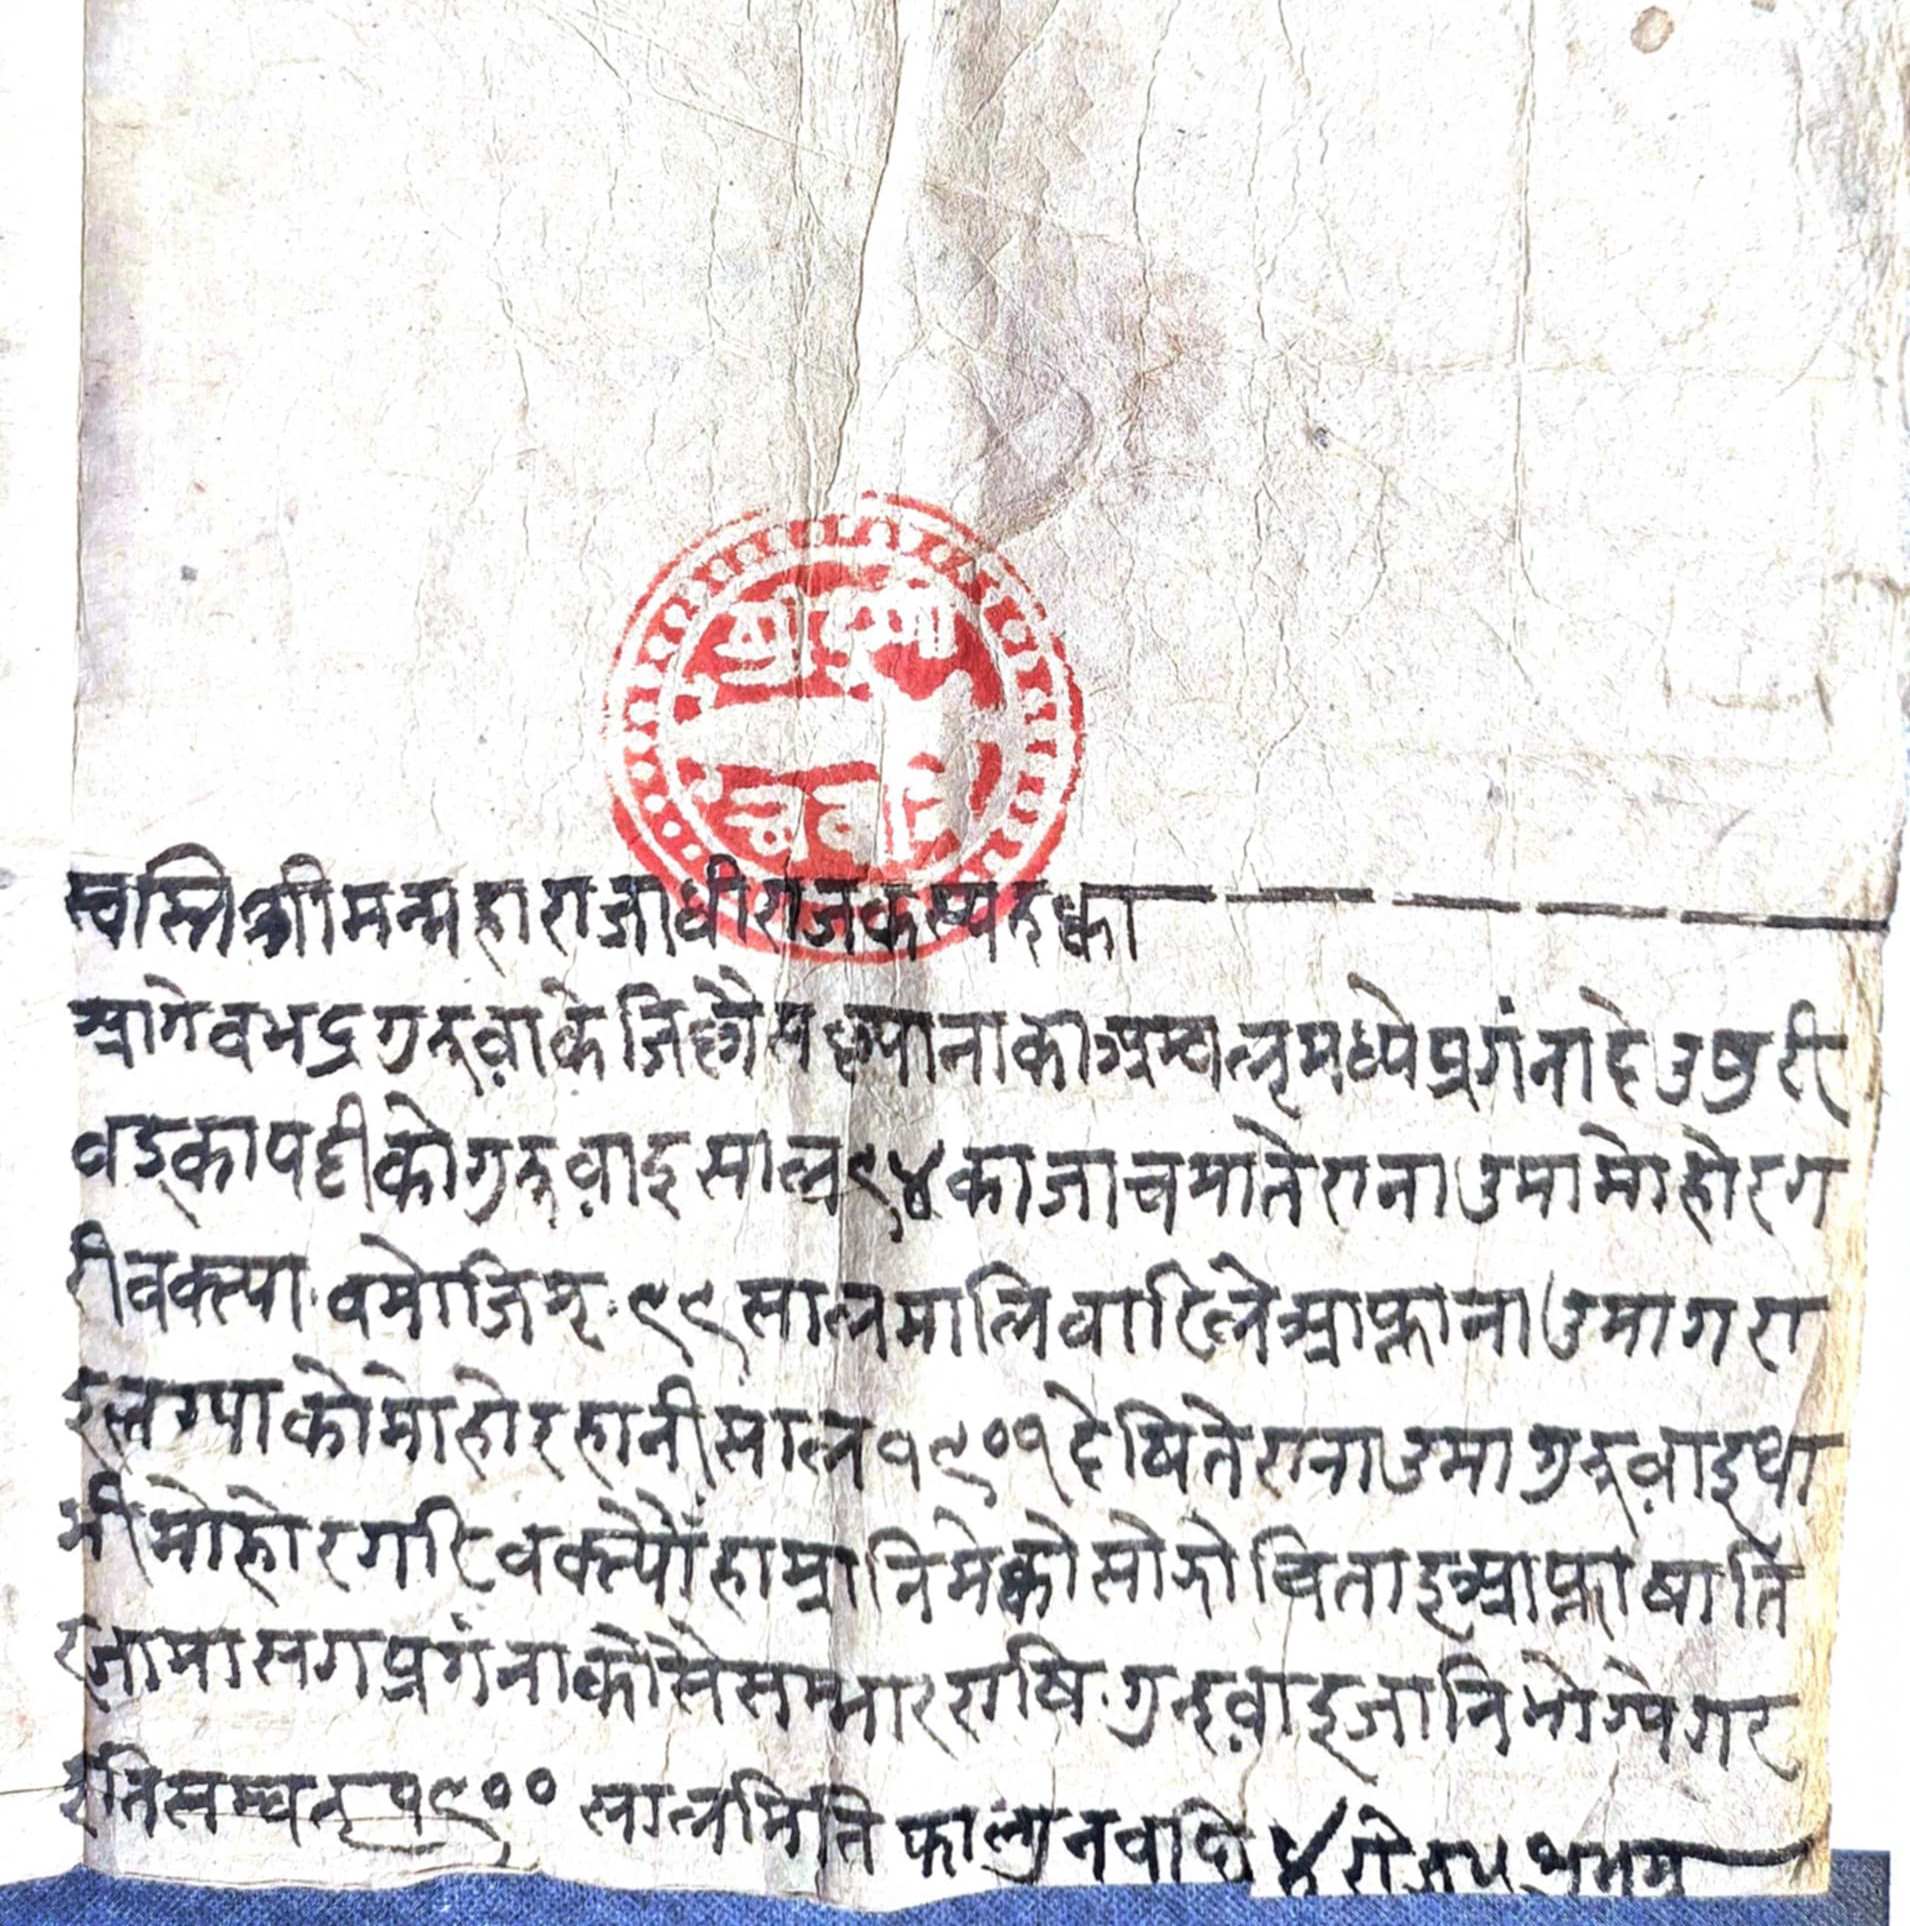 श्री दुर्गा
भवानि
स्वस्ति श्रीमन्महाराजाधीराजकस्य रुक्का
आगे वभद्र गुरुवाके जिछौस पछ्यानाका अम्वल्मध्ये प्रगंना देउषुरी
वड्का पट्टीको गुरुवाइ साल ९४ का जाचमा तेरा नाउमा मोहोर ग
री वक्स्या वमोजिम् ९९ सालमा लिवारिले आफ्ना नाउमा गरा
इ लग्याको मोहोर हानी साल १९०१ देषि तेरा नाउमा गुरुवाइ था
मी मोहोर गरि वक्स्यौं हाम्रा निमेक्को सोझो चिताइ आफ्ना षाति
र्जामासग प्रगंनाको सैसम्भार राषि गुरुवाइ जानि भोग्ये गर
इति सम्वत् १९०० साल मिति फाल्गुन वदि ४ रोज शुभम्